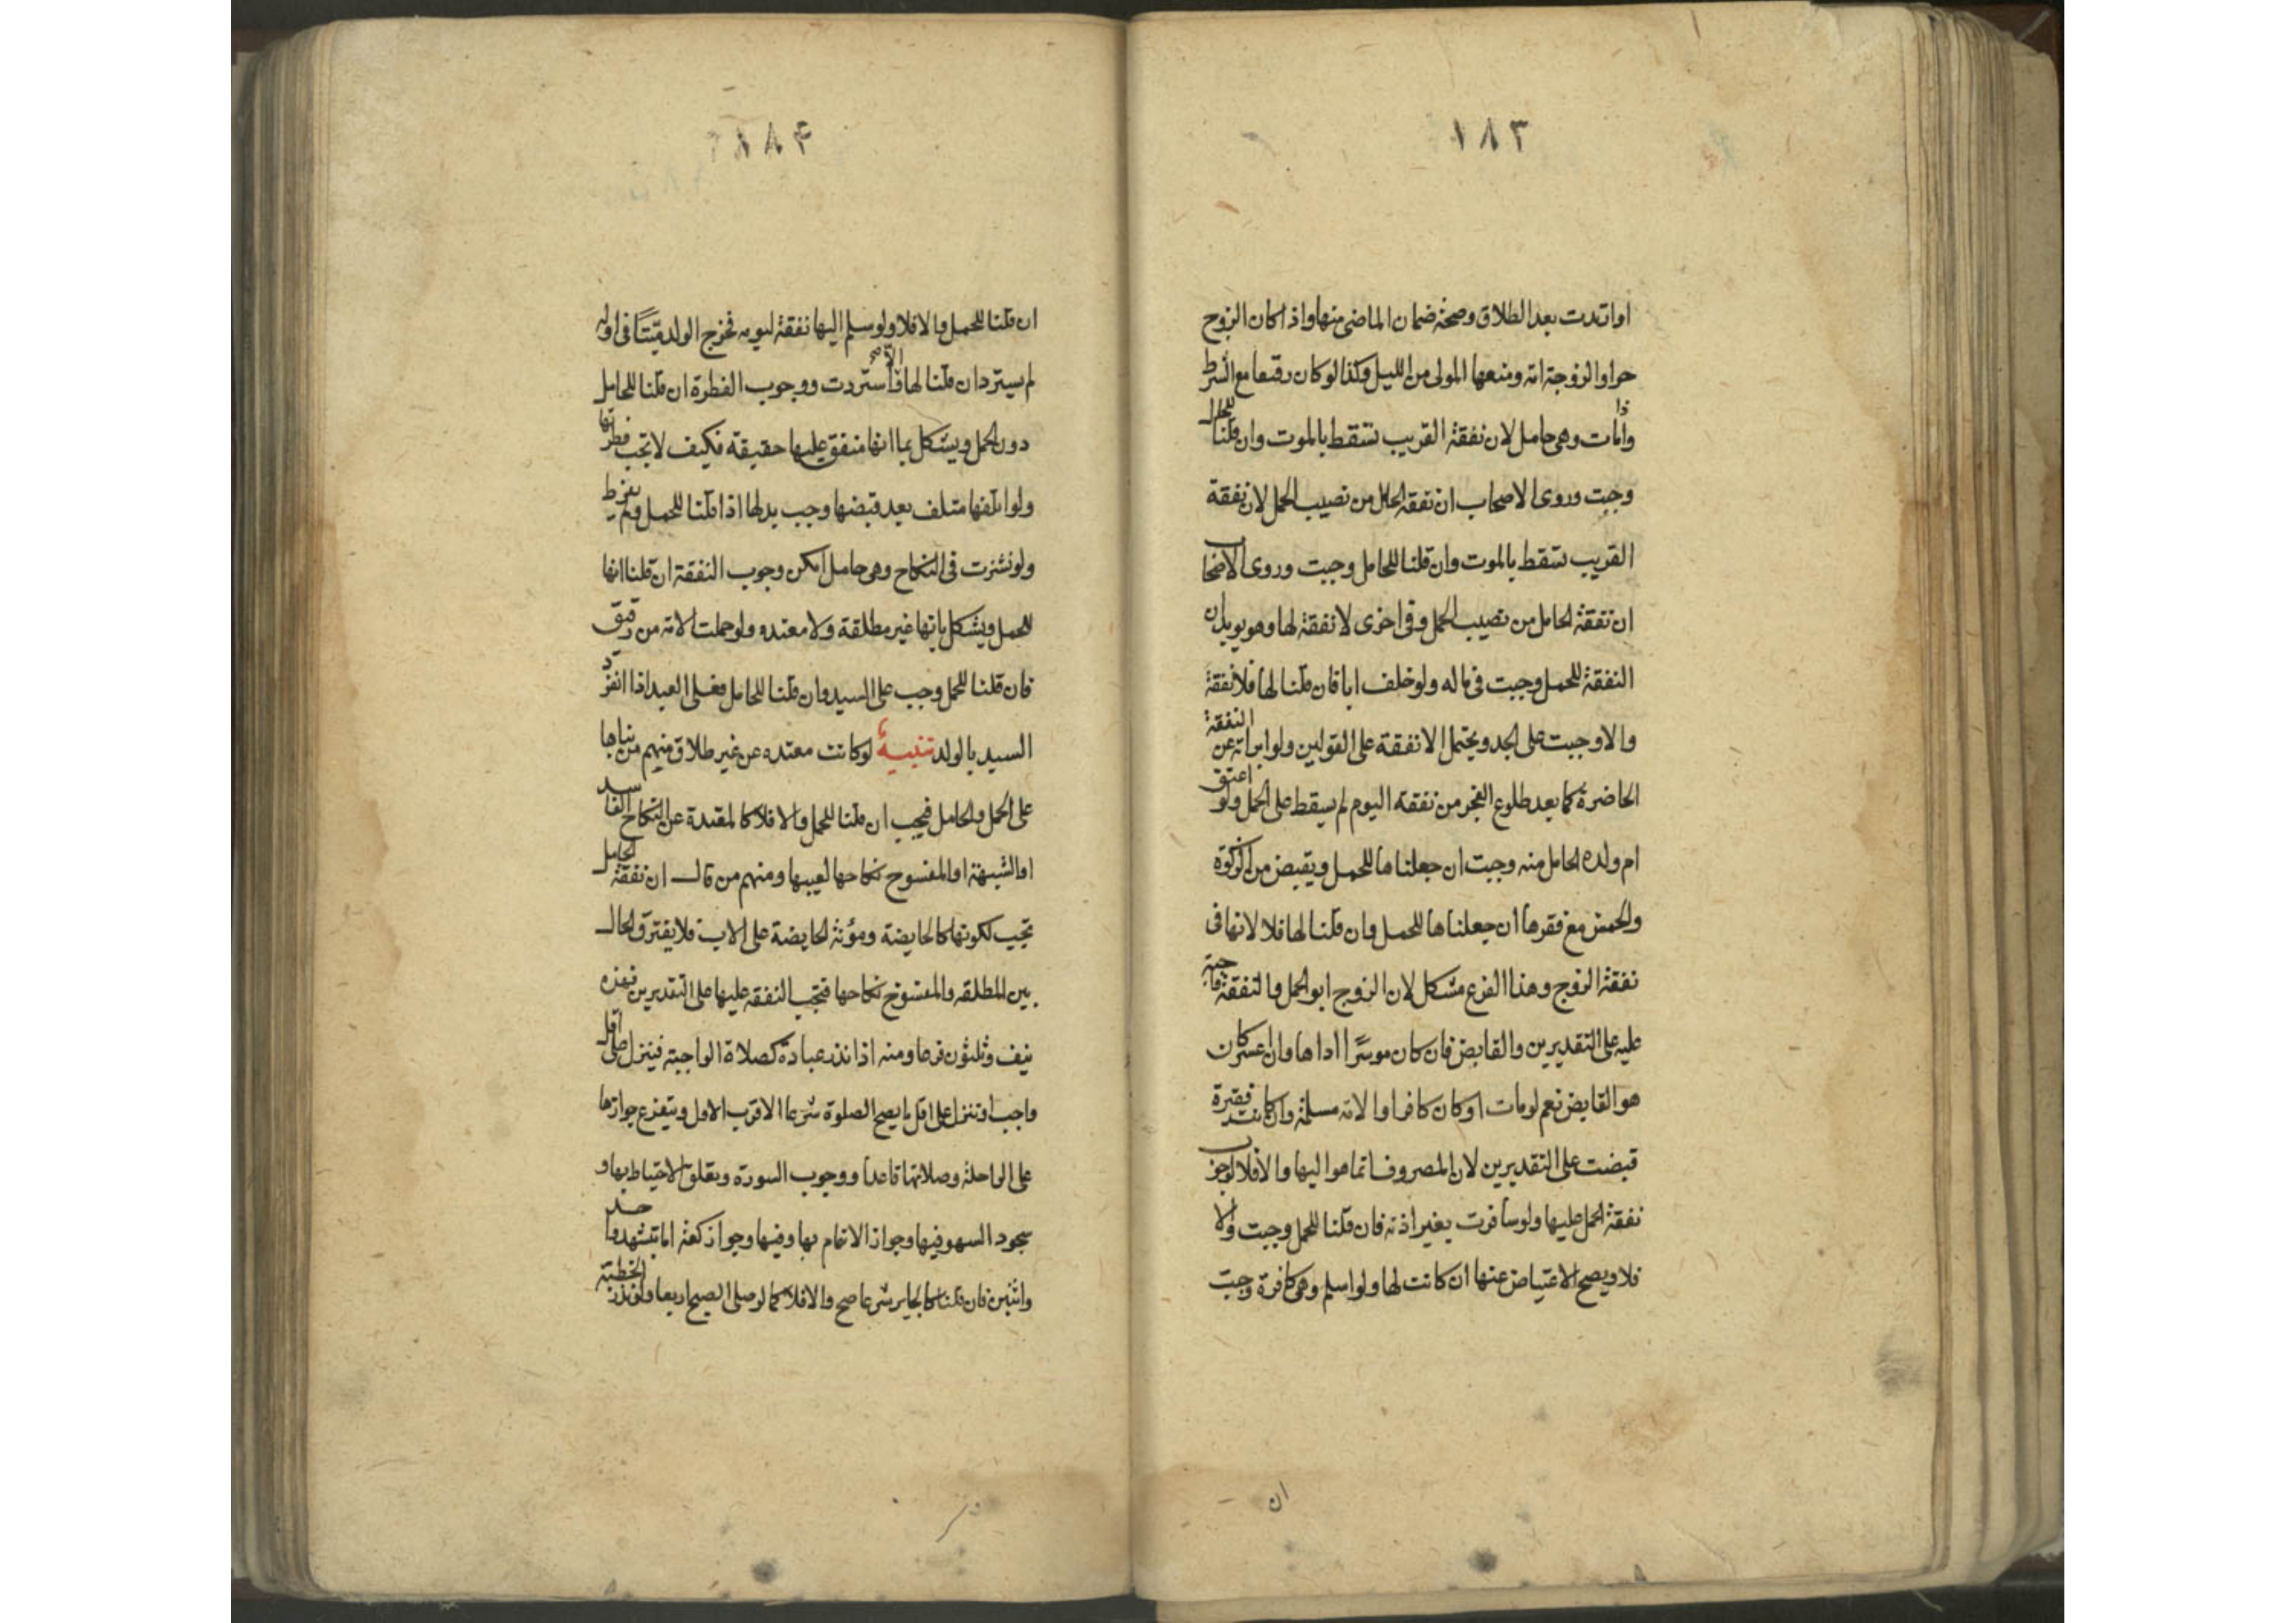 ١٨٣
او ارتدت بعد الطلاق وصحة ضمان الماضي منها واذا كان الزوج
حرا والزوجة امة ومنعها المولى من الليل وكذا لو كان رقيقا مع الشرط
واذا مات وهي حامل لان نفقة القريب تسقط بالموت وان قلنا للحامل
وجبت وروى الاصحاب ان نفقة الحامل من نصيب الحمل لان نفقة
القريب تسقط بالموت وان قلنا للحامل وجبت وروى الاصحاب
ان نفقة الحامل من نصيب الحمل وفي اخرى لا نفقة لها وهو يويد ان
النفقة للحمل وجبت في ماله ولو خلف ابا فان قلنا لها فلا نفقة
والا وجبت على الجد ويحتمل الا نفقة على القولين ولو ابراته عن النفقة
الحاضرة كما بعد طلوع الفجر من نفقة اليوم لم يسقط على الحمل ولو اعتق
ام ولده الحامل منه وجبت ان جعلناها للحمل ويقبض من الزكوة
والخمس مع فقرها ان جعلناها للحمل وان قلنا لها فلا لانها في
نفقة الزوج وهذا الفرع مشكل لان الزوج ابو الحمل والنفقة واجبة
عليه على التقديرين والقابض فان كان موسرا اداها وان اعسر كان
هو القابض نعم لو مات او كان كافرا والامة مسلمة وان كانت فقيرة
قبضت على التقديرين لان المصروف انما هو اليها والا فلا لوجوب
نفقة الحمل عليها ولو سافرت بغير اذنه فان قلنا للحمل وجبت والا
فلا ويصح الاعتياض عنها ان كانت لها ولو اسلم وهي كافرة وجبت
ان
١٨٤
ان قلنا للحمل والا فلا ولو سلم اليها نفقة ليومه فخرج الولد ميتا في اوله
لم يسترد ان قلنا لها والا استردت ووجوب الفطرة ان قلنا للحامل
دون الحمل ويشكل بما انها منفق عليها حقيقة فكيف لا تجب فطرتها
ولو اتلفها متلف بعد قبضها وجب بدلها اذا قلنا للحمل ولم يفرط
ولو نشزت في النكاح وهي حامل امكن وجوب النفقة ان قلنا انها
للحمل ويشكل بانها غير مطلقة ولا معتده ولو حملت الامة من رقيق
فان قلنا للحمل وجب على السيد وان قلنا للحامل فعلى العبد اذا انفرد
السيد بالولد تنبيه لو كانت معتده عن غير طلاق منهم من بناها
على الحمل والحامل فيجب ان قلنا للحمل والا فلا كالمعتدة عن النكاح الفاسد
او الشبهة او المفسوخ نكاحها لعيبها ومنهم من قال ان نفقة الحامل
تجب لكونها كالحاضنة ومؤنة الحاضنة على الاب فلا يفترق الحال
بين المطلقه والمفسوخ نكاحها فتجب النفقه عليها على التقديرين فهذه
نيف وثلثون فرعا ومنه اذا نذر عبادة كصلاة الواجبة فينزل على اقل
واجب او تنزل على اقل ما يصح الصلوة شرعا الاقرب الاول ويتفرع جوازها
على الراحلة وصلاتها قاعدا ووجوب السورة وتعلق الاحتياط بها و
سجود السهو فيها وجواز الائتمام بها وفيها وجواز ركعة اما بتشهد واحد
واثنين فان قلنا كالجايز شرعا صح والا فلا كما لو صلى الصبح اربعا ولو نذر الخطبة